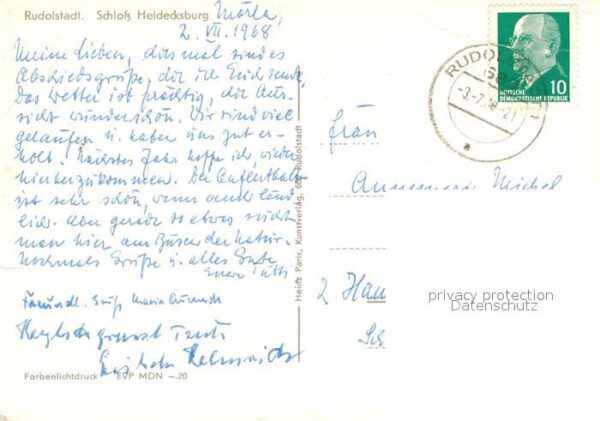 Rudolstadt. Schloß Heidecksburg
Mörla,
2. VII. 1968
Meine Lieben, diesmal sind es
Abschiedsgrüße, die ich Euch sende.
Das Wetter ist prächtig, die Aus-
sicht wunderschön. Wir sind viel
gelaufen u. haben uns gut er-
holt. Nächstes Jahr hoffe ich, wieder
hierherzukommen. Der Aufenthalt
ist sehr schön, wenn auch länd-
lich. Aber gerade so etwas sucht
man hier am Busen der Natur.
Nochmals Grüße u. alles Gute
Eure Tutti
Freundl. Gruß Maria
Herzlich grüßt Tante
Farbenlichtdruck EVP MDN –.20
Heinz Paris, Kunstverlag, Rudolstadt
RUDOLS
-3.-7.68-21
10
DEUTSCHE
DEMOKRATISCHE REPUBLIK
Frau
Annemarie Michel
2 Ham
Sch
privacy protection
Datenschutz